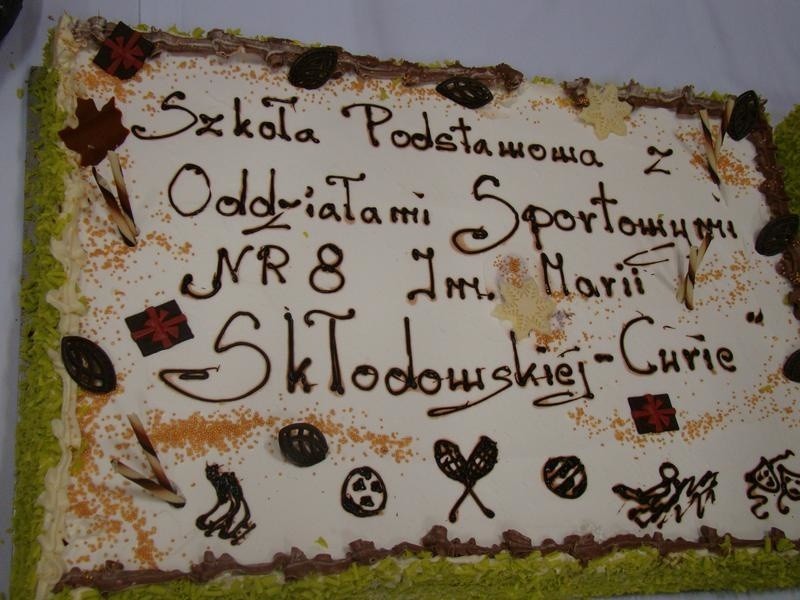 Szkoła Podstawowa z
Oddziałami Sportowymi
NR 8 Im. Marii
Skłodowskiéj-Curie"